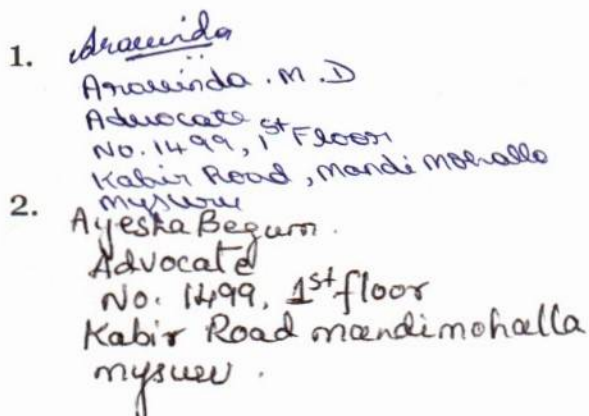 1. Aravinda
Aravinda . M . D
Advocate
No. 1499, 1st Floor
Kabir Road, Mandi Mohalla
Mysuru
2. Ayesha Begum.
Advocate
No. 1499, 1st floor
Kabir Road mandimohalla
mysuru.